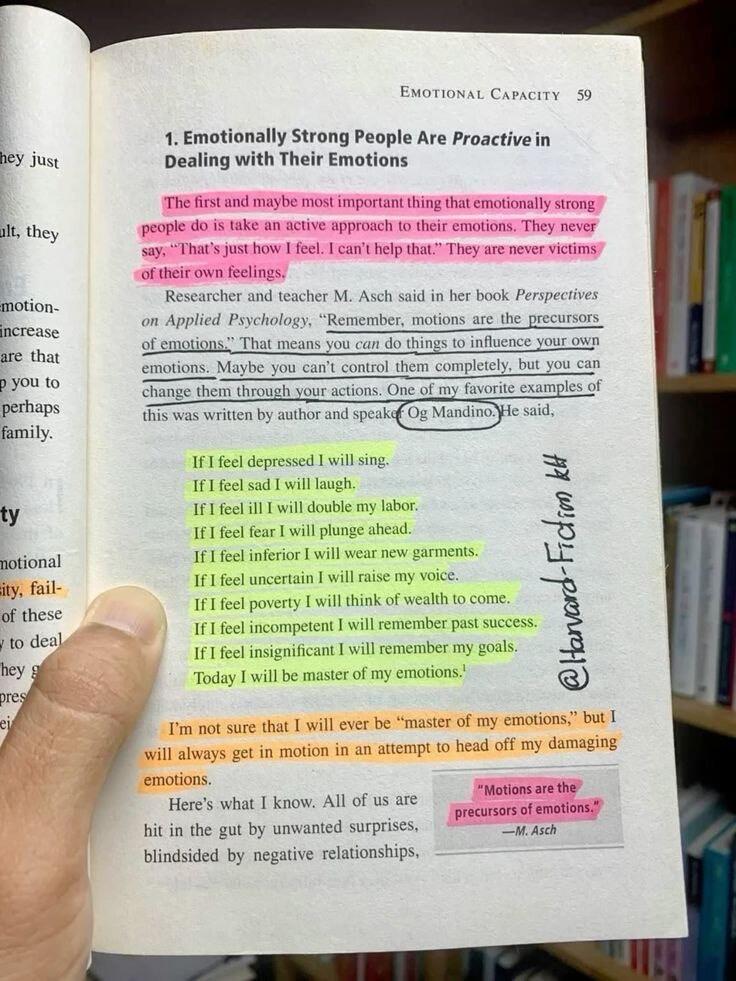 hey just
ult, they
emotion-
increase
are that
p you to
perhaps
family.
ty
motional
ity, fail-
of these
y to deal
hey g
pres
EMOTIONAL CAPACITY 59
1. Emotionally Strong People Are Proactive in
Dealing with Their Emotions
The first and maybe most important thing that emotionally strong
people do is take an active approach to their emotions. They never
say, “That’s just how I feel. I can’t help that.” They are never victims
of their own feelings.
Researcher and teacher M. Asch said in her book Perspectives
on Applied Psychology, “Remember, motions are the precursors
of emotions.” That means you can do things to influence your own
emotions. Maybe you can’t control them completely, but you can
change them through your actions. One of my favorite examples of
this was written by author and speaker Og Mandino. He said,
If I feel depressed I will sing.
If I feel sad I will laugh.
If I feel ill I will double my labor.
If I feel fear I will plunge ahead.
If I feel inferior I will wear new garments.
If I feel uncertain I will raise my voice.
If I feel poverty I will think of wealth to come.
If I feel incompetent I will remember past success.
If I feel insignificant I will remember my goals.
Today I will be master of my emotions.1
@Harvard-Fiction kH
I’m not sure that I will ever be “master of my emotions,” but I
will always get in motion in an attempt to head off my damaging
emotions.
Here’s what I know. All of us are
hit in the gut by unwanted surprises,
blindsided by negative relationships,
“Motions are the
precursors of emotions.”
—M. Asch